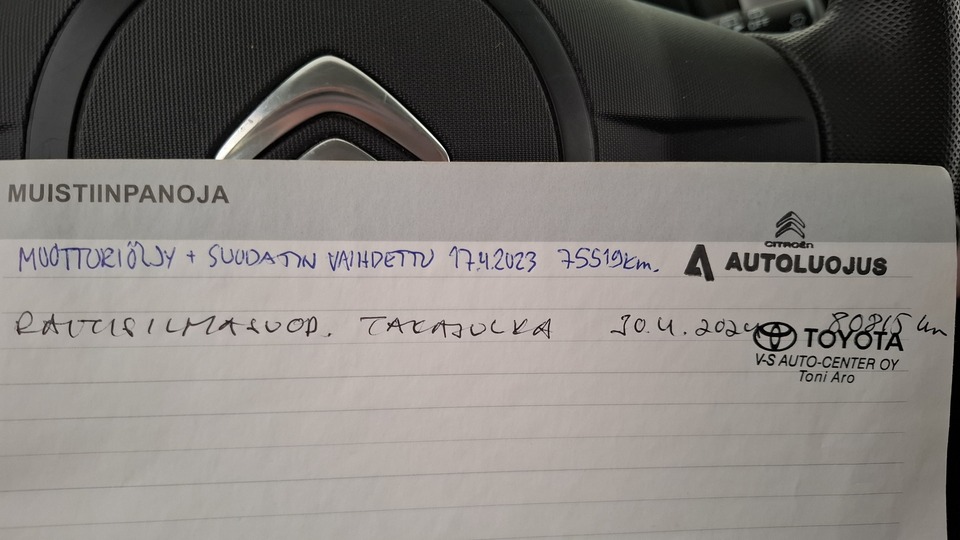 MUISTIINPANOJA
CITROËN
MUOTTORIÖLJY + SUODATIN VAIHDETTU 17.4.2023 75519km.
AUTOLUOJUS
RAITISILMASUOD. TAKAJULKA 30.4.2024 80815 km
TOYOTA
V-S AUTO-CENTER OY
Toni Aro